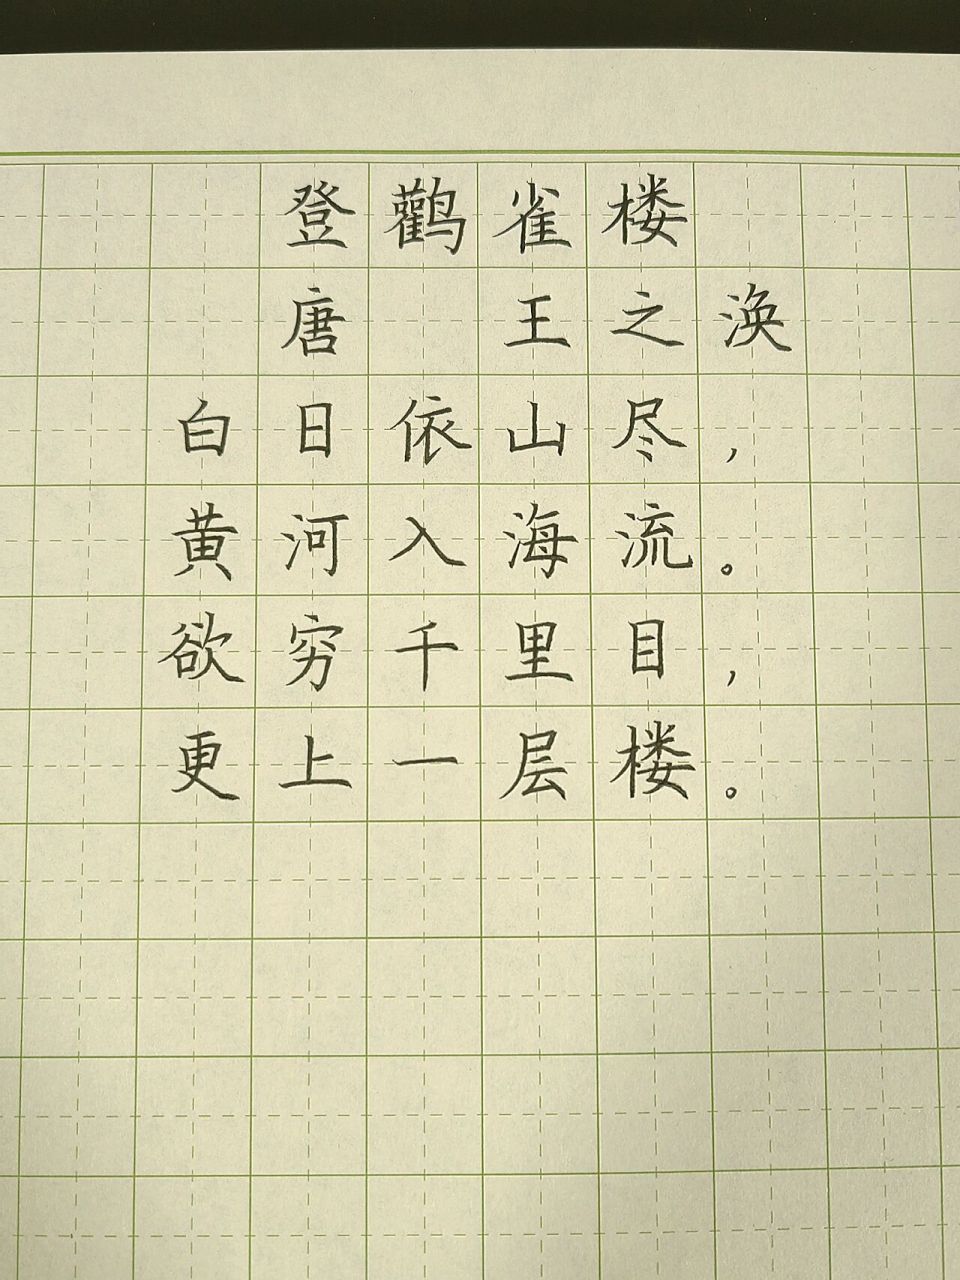 登鹳雀楼
唐 王之涣
白日依山尽，
黄河入海流。
欲穷千里目，
更上一层楼。